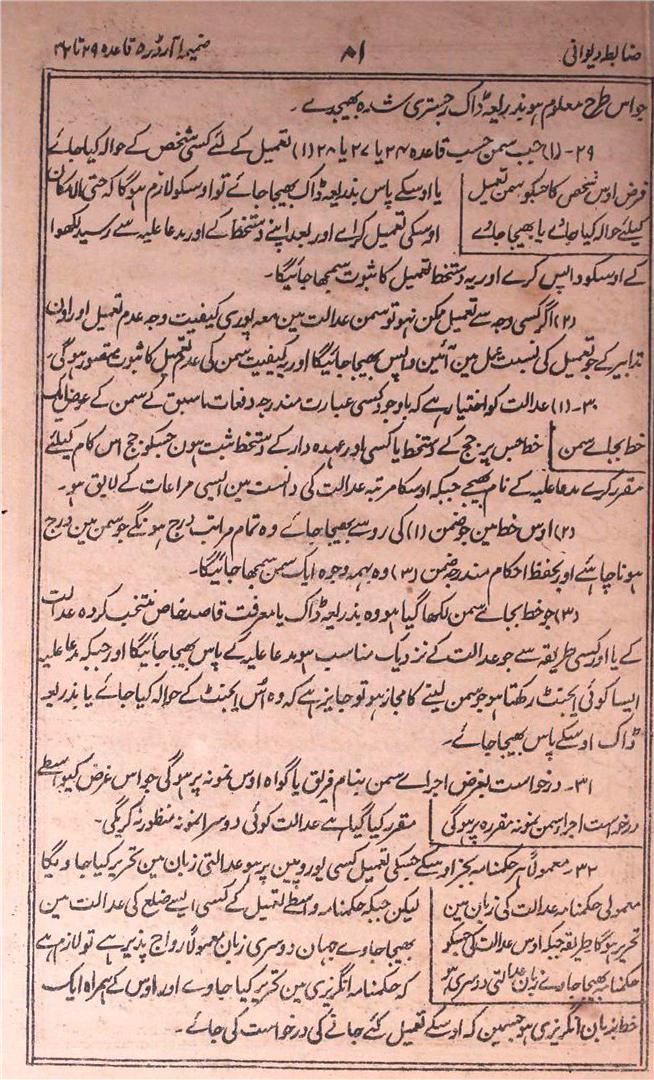 ضابطہ دیوانی ۸۱ ضمیمہ ۱ آرڈر ۵ قاعدہ ۲۹ تا ۳۲
جو اس طرح معلوم ہو بذریعہ ڈاک رجسٹری شدہ بھیجدے۔
۲۹-(۱) جب سمن حسب قاعدہ ۲۴ یا ۲۷ یا ۲۸ (۱) تعمیل کے لئے کسی شخص کے حوالہ کیا جائے
فرض اوس شخص کا جسکو سمن تعمیل یا اوسکے پاس بذریعہ ڈاک بھیجا جائے تو اوسکو لازم ہوگا کہ حتی الامکان
کیلئے حوالہ کیا جاوے یا بھیجا جاوے اوسکی تعمیل کرائے اور بعد اپنے دستخط کے اور مدعا علیہ سے رسید لکھوا
کے اوسکو واپس کرے اور یہ دستخط تعمیل کا ثبوت سمجھا جائیگا۔
(۲) اگر کسی وجہ سے تعمیل ممکن نہو تو سمن عدالت مین معہ پوری کیفیت وجہ عدم تعمیل اور اون
تدابیر کے جو تعمیل کی نسبت عمل مین آئین واپس بھیجا جائیگا اور یہ کیفیت سمن کی عدم تعمیل کا ثبوت متصور ہوگی۔
۳۰-(۱) عدالت کو اختیار ہے کہ باوجود کسی عبارت مندرجہ دفعات ماسبق کے سمن کے عوض ایک
خط بجائے سمن خط جس پر جج کے دستخط یا کسی اور عہدہ دار کے دستخط ثبت ہون جسکو جج اس کام کیلئے
مقرر کرے مدعا علیہ کے نام بھیجے جبکہ اوسکا مرتبہ عدالت کی دانست مین ایسی مراعات کے لایق ہو۔
(۲) اوس خط مین جو ضمن (۱) کی رو سے بھیجا جائے وہ تمام مراتب درج ہونگے جو سمن مین درج
ہونا چاہئے اور بحفظ احکام مندرجہ ضمن (۳) وہ بہمہ وجوہ ایک سمن سمجھا جائیگا۔
(۳) جو خط بجائے سمن لکھا گیا ہو وہ بذریعہ ڈاک یا معرفت قاصد خاص منتخب کردہ عدالت
کے یا اور کسی طریقہ سے جو عدالت کے نزدیک مناسب ہو مدعا علیہ کے پاس بھیجا جائیگا اور جبکہ مدعا علیہ
ایسا کوئی ایجنٹ رکھتا ہو جو سمن لینے کا مجاز ہو تو جایز ہے کہ وہ اس ایجنٹ کے حوالہ کیا جائے یا بذریعہ
ڈاک اوسکے پاس بھیجا جائے۔
۳۱- درخواست بغرض اجراے سمن بنام فریق یا گواہ اوس نمونہ پر ہوگی جو اس غرض کیواسطے
درخواست اجرا سمن نمونہ مقررہ پر ہوگی مقرر کیا گیا ہے عدالت کوئی دوسرا نمونہ منظور نہ کریگی۔
۳۲- معمولاً ہر حکمنامہ بجز اوسکے جسکی تعمیل کسی یوروپین پر ہو عدالتی زبان مین تحریر کیا جاویگا
معمولی حکمنامہ عدالت کی زبان مین لیکن جبکہ حکمنامہ واسطے تعمیل کے کسی ایسے ضلع کی عدالت مین
تحریر ہوگا طریقہ جبکہ اوس عدالت کی جسکو بھیجا جاوے جہان دوسری زبان معمولاً رواج پذیر ہے تو لازم ہے
حکمنامہ بھیجا جاوے زبان عدالتی دوسری ہو کہ حکمنامہ انگریزی مین تحریر کیا جاوے اور اوس کے ہمراہ ایک
خط بزبان انگریزی ہو جسمین کہ اوسکے تعمیل کئے جانے کی درخواست کی جائے۔